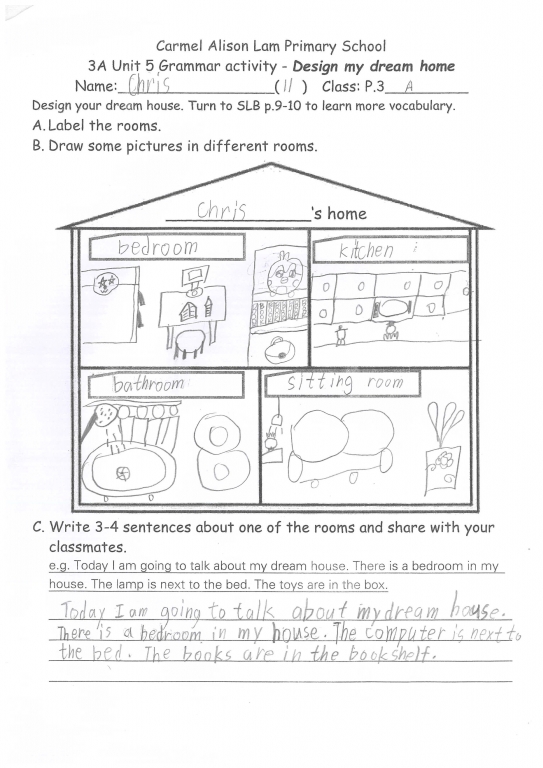 Carmel Alison Lam Primary School
3A Unit 5 Grammar activity - Design my dream home
Name: Chris (11) Class: P.3 A
Design your dream house. Turn to SLB p.9-10 to learn more vocabulary.
A. Label the rooms.
B. Draw some pictures in different rooms.
Chris 's home
bedroom
kitchen
bathroom
sitting room
C. Write 3-4 sentences about one of the rooms and share with your
classmates.
e.g. Today I am going to talk about my dream house. There is a bedroom in my
house. The lamp is next to the bed. The toys are in the box.
Today I am going to talk about my dream house.
There is a bedroom in my house. The computer is next to
the bed. The books are in the bookshelf.